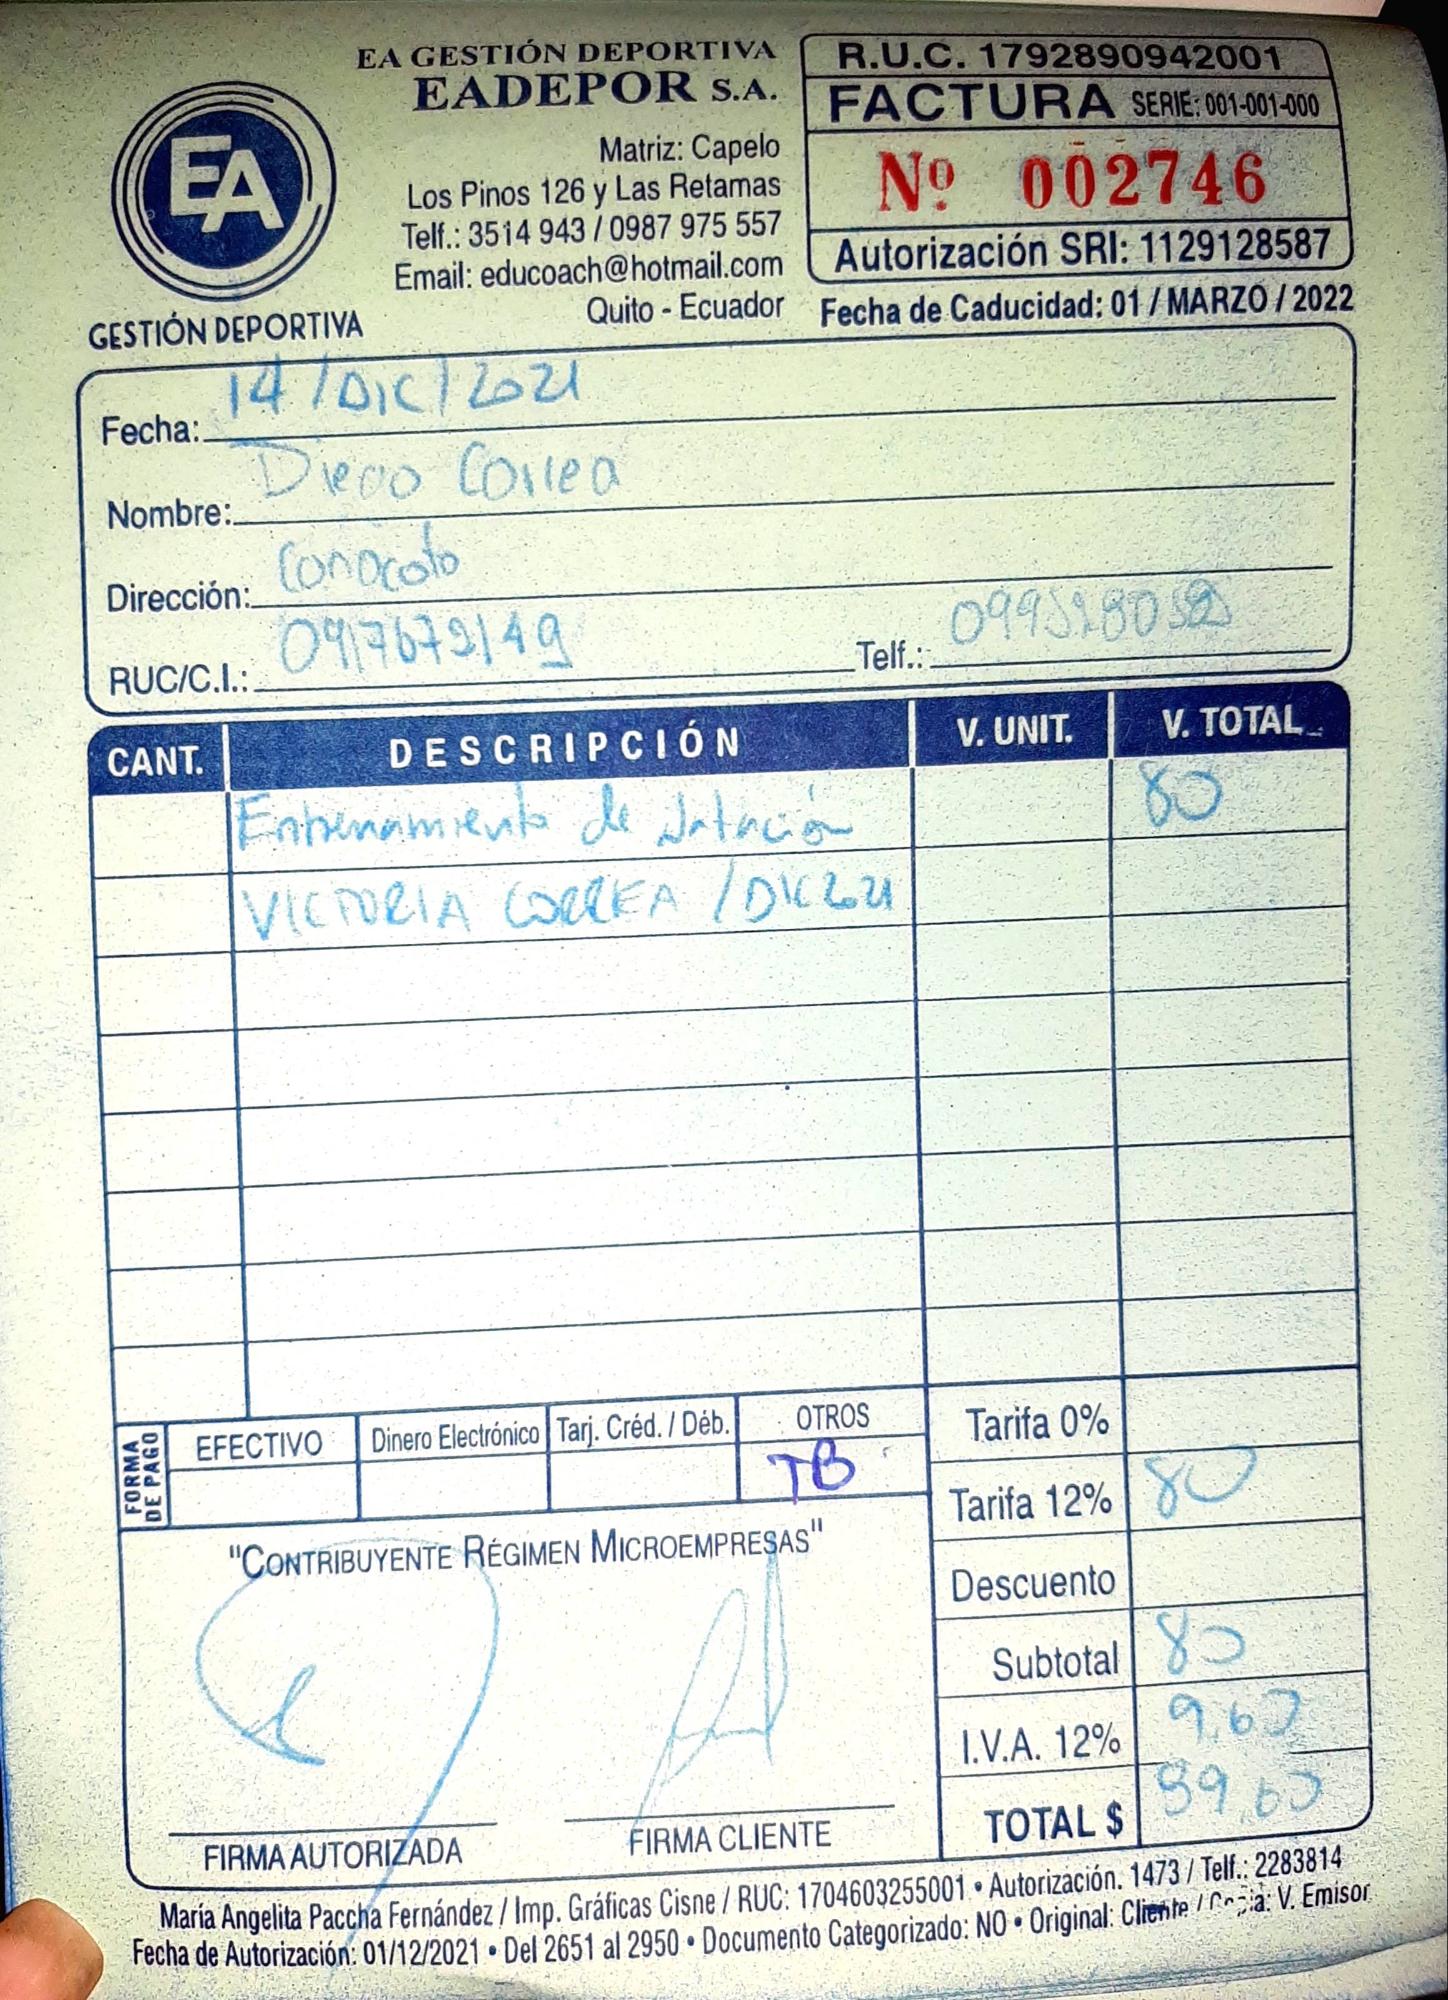 EA GESTIÓN DEPORTIVA
EADEPOR S.A.
EA
GESTIÓN DEPORTIVA
Matriz: Capelo
Los Pinos 126 y Las Retamas
Telf.: 3514 943 / 0987 975 557
Email: educoach@hotmail.com
Quito - Ecuador
R.U.C. 1792890942001
FACTURA SERIE: 001-001-000
Nº 002746
Autorización SRI: 1129128587
Fecha de Caducidad: 01 / MARZO / 2022
Fecha: 14/DIC/2021
Nombre: Diego Correa
Dirección: Conocoto
RUC/C.I.: Telf.:
CANT. DESCRIPCIÓN V. UNIT. V. TOTAL
Entrenamiento de Natación 80
VICTORIA CORREA / DIC 2021
FORMA DE PAGO
EFECTIVO Dinero Electrónico Tarj. Créd. / Déb. OTROS
TB
Tarifa 0%
Tarifa 12% 80
Descuento
Subtotal 80
I.V.A. 12% 9.60
TOTAL $ 89.60
"CONTRIBUYENTE RÉGIMEN MICROEMPRESAS"
FIRMA AUTORIZADA FIRMA CLIENTE
María Angelita Paccha Fernández / Imp. Gráficas Cisne / RUC: 1704603255001 • Autorización. 1473 / Telf.: 2283814
Fecha de Autorización: 01/12/2021 • Del 2651 al 2950 • Documento Categorizado: NO • Original: Cliente / Copia: V. Emisor